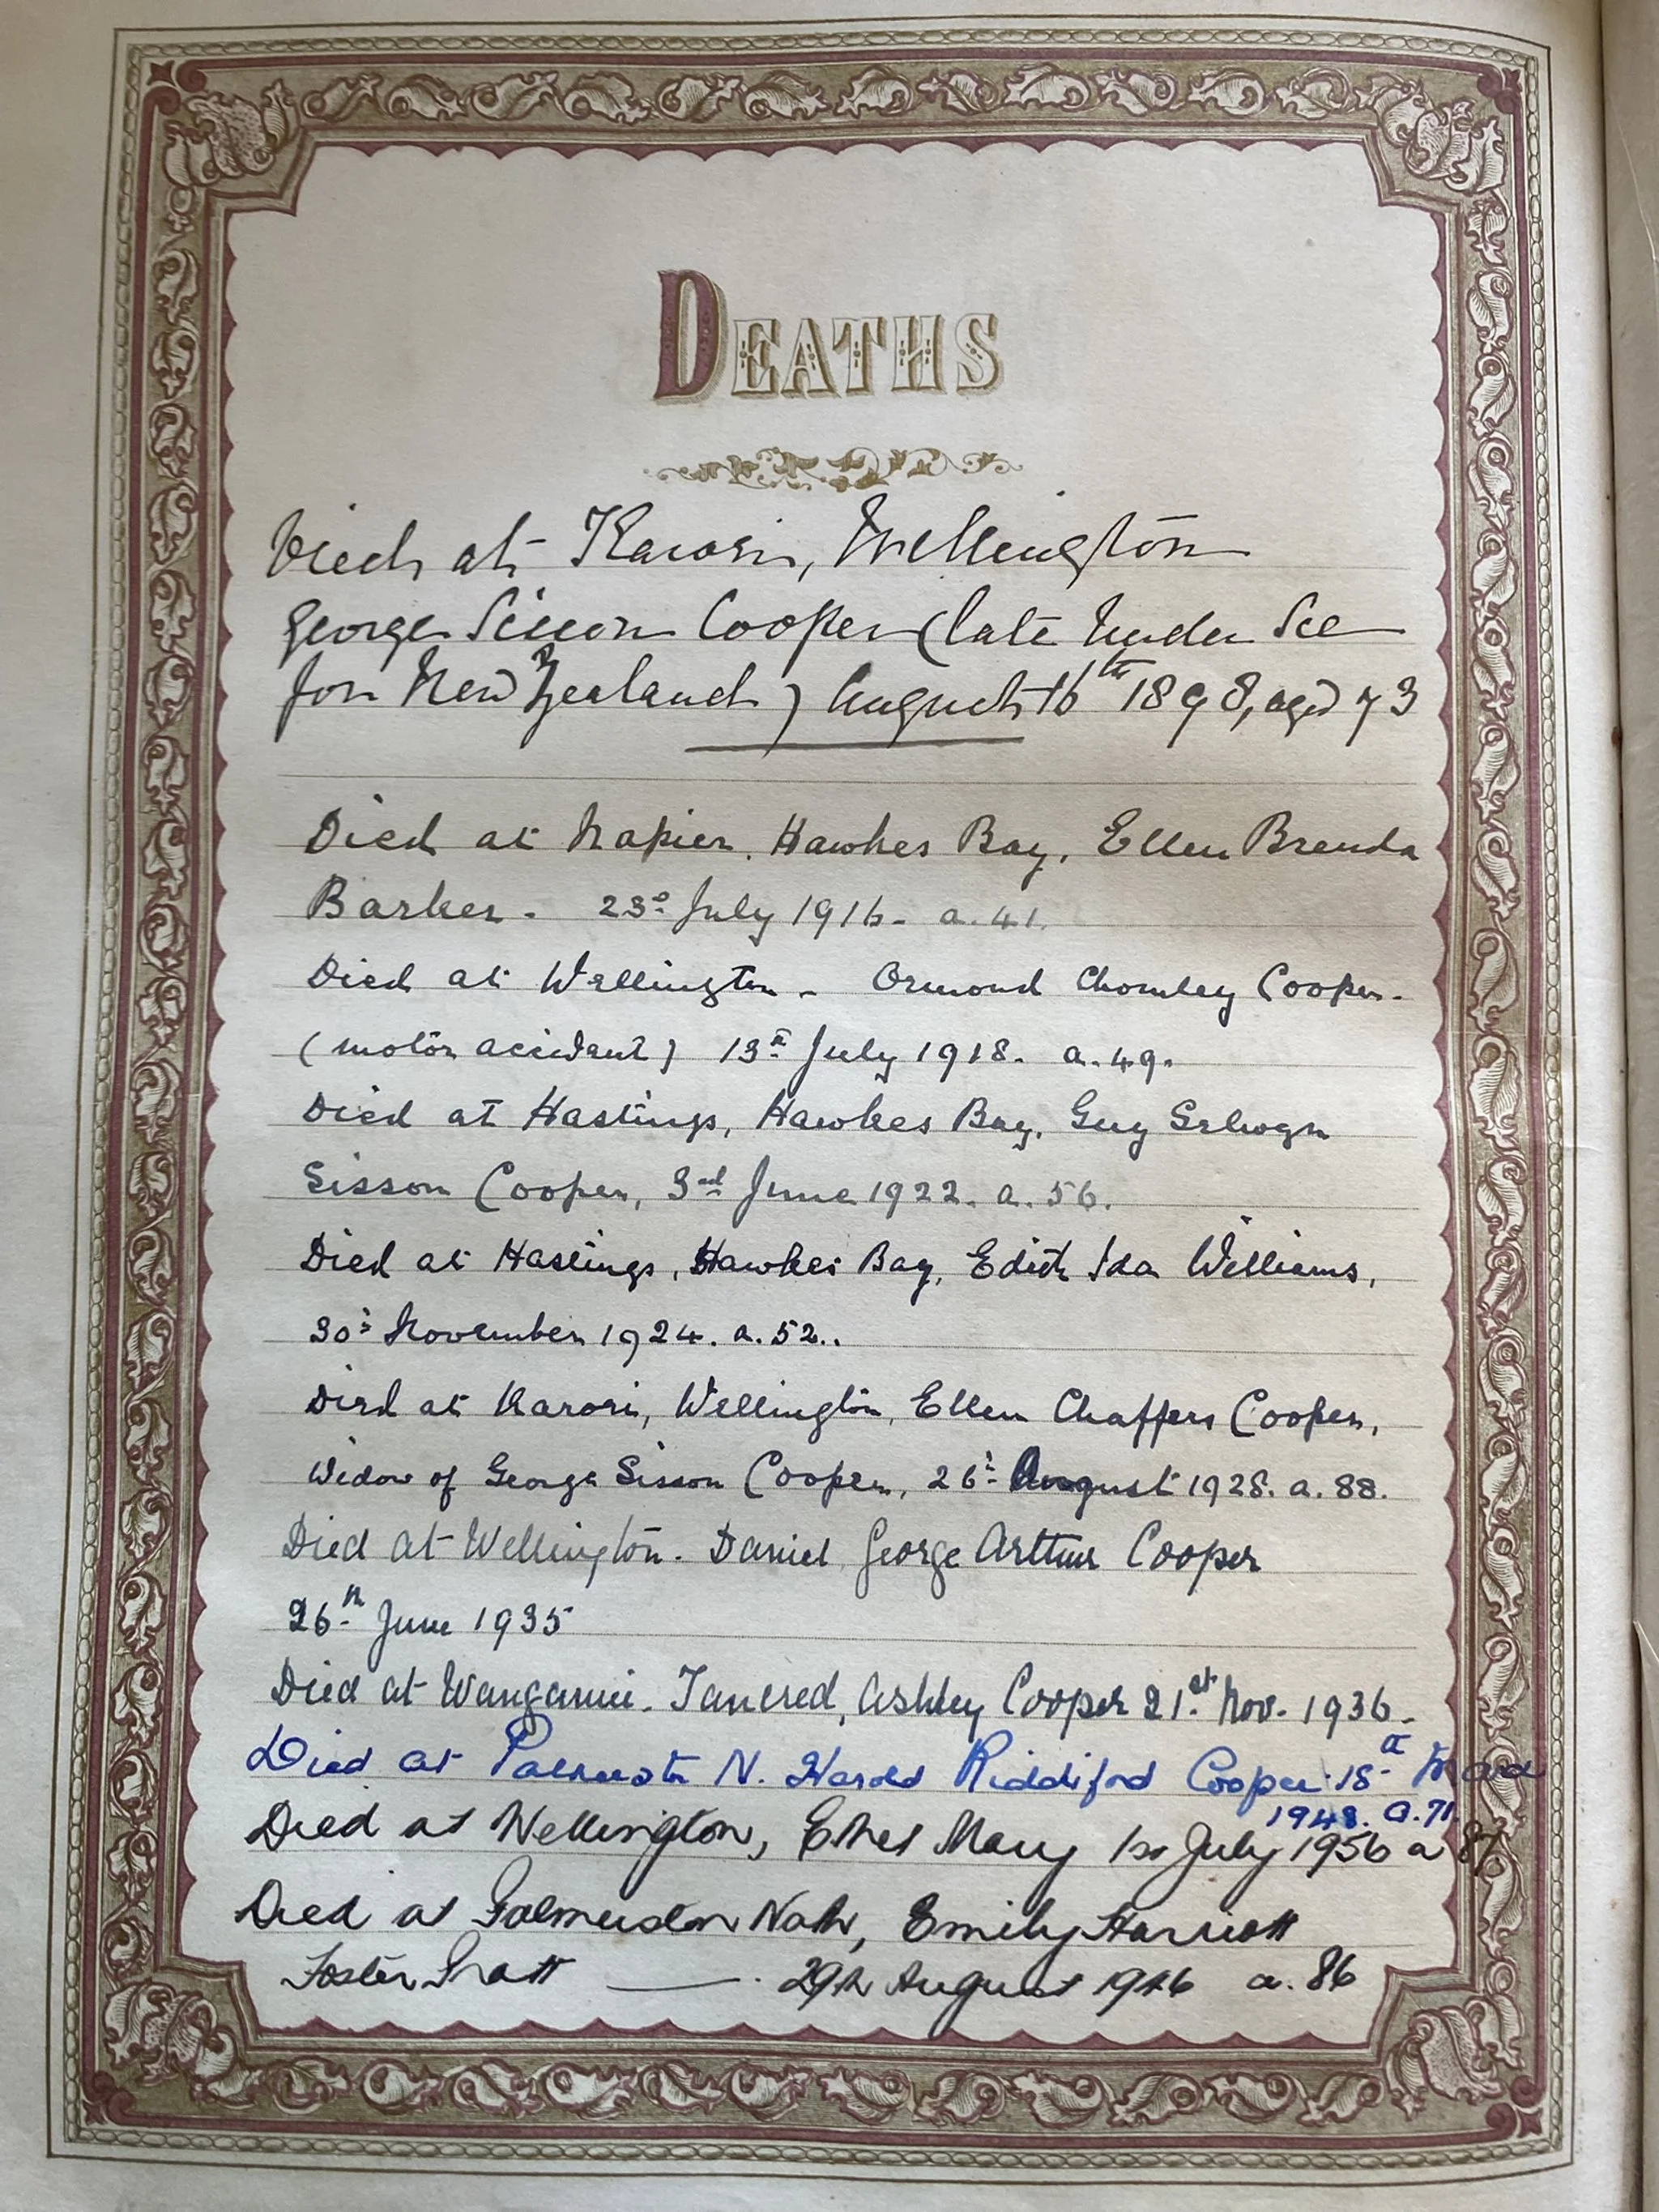 DEATHS
Died at Karori, Wellington
George Sisson Cooper (late Under Sec
for New Zealand) August 16th 1898, aged 73
Died at Napier, Hawkes Bay, Ellen Brenda
Barker. 23d July 1916. a. 41.
Died at Wellington. Ormond Chomley Cooper.
(motor accident) 13th July 1918. a. 49.
Died at Hastings, Hawkes Bay, Guy Selwyn
Sisson Cooper, 3rd June 1922. a. 56.
Died at Hastings, Hawkes Bay, Edith Ida Williams,
30th November 1924. a. 52.
Died at Karori, Wellington, Ellen Chaffers Cooper,
Widow of George Sisson Cooper, 26th August 1928. a. 88.
Died at Wellington. Daniel George Arthur Cooper
26th June 1935
Died at Wanganui. Tancred Ashley Cooper 21st Nov. 1936.
Died at N. Harold Riddiford Cooper 18th
1948. a. 71
Died at Wellington, Ethel Mary 1st July 1956 a 87
Died at Palmerston North, Emily Harriott
Foster Pratt — 29th August a. 86